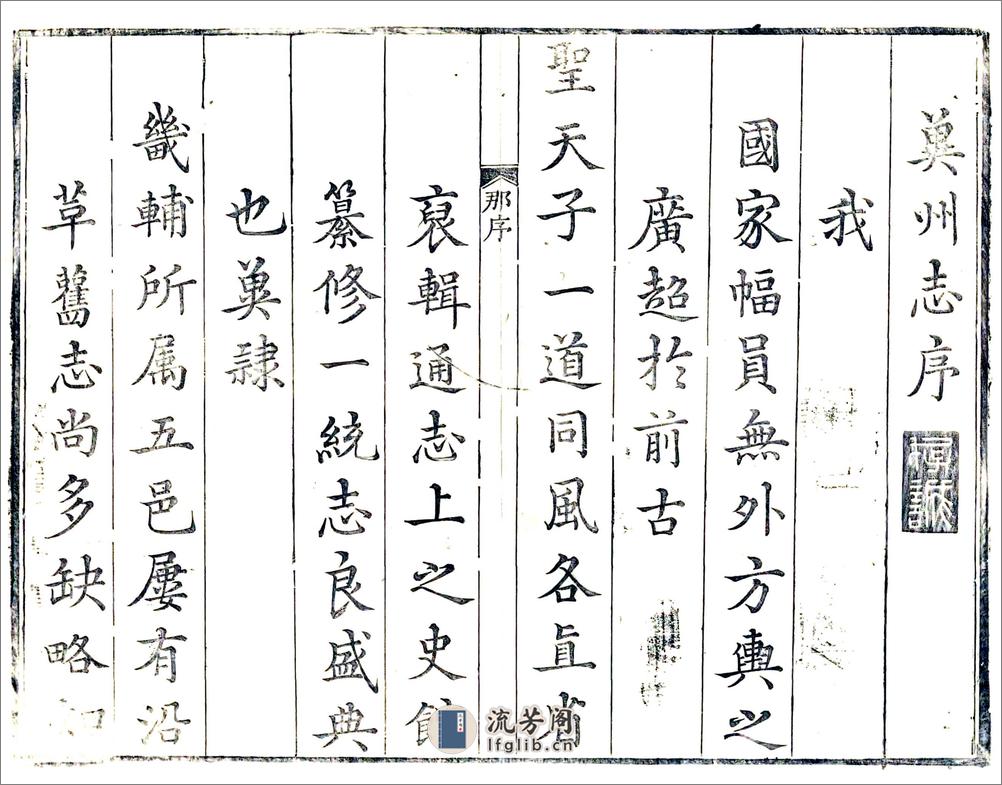 兾州志序
我
國家幅員無外方輿之
廣超扵前古
聖天子一道同風各直省
那序
裒輯通志上之史館
纂修一統志良盛典
也兾隷
畿輔所属五邑屢有沿
草舊志尚多缺略
流芳阁
lfglib.cn